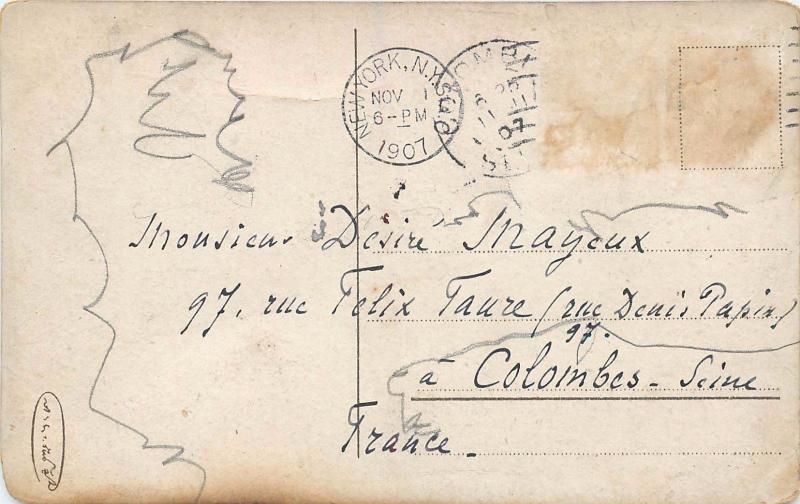 NEW YORK, N.Y. STA. O
NOV 1
6-PM
1907
Monsieur Désiré Mayeux
97, rue Félix Faure (rue Denis Papin)
97.
à Colombes - Seine
France.